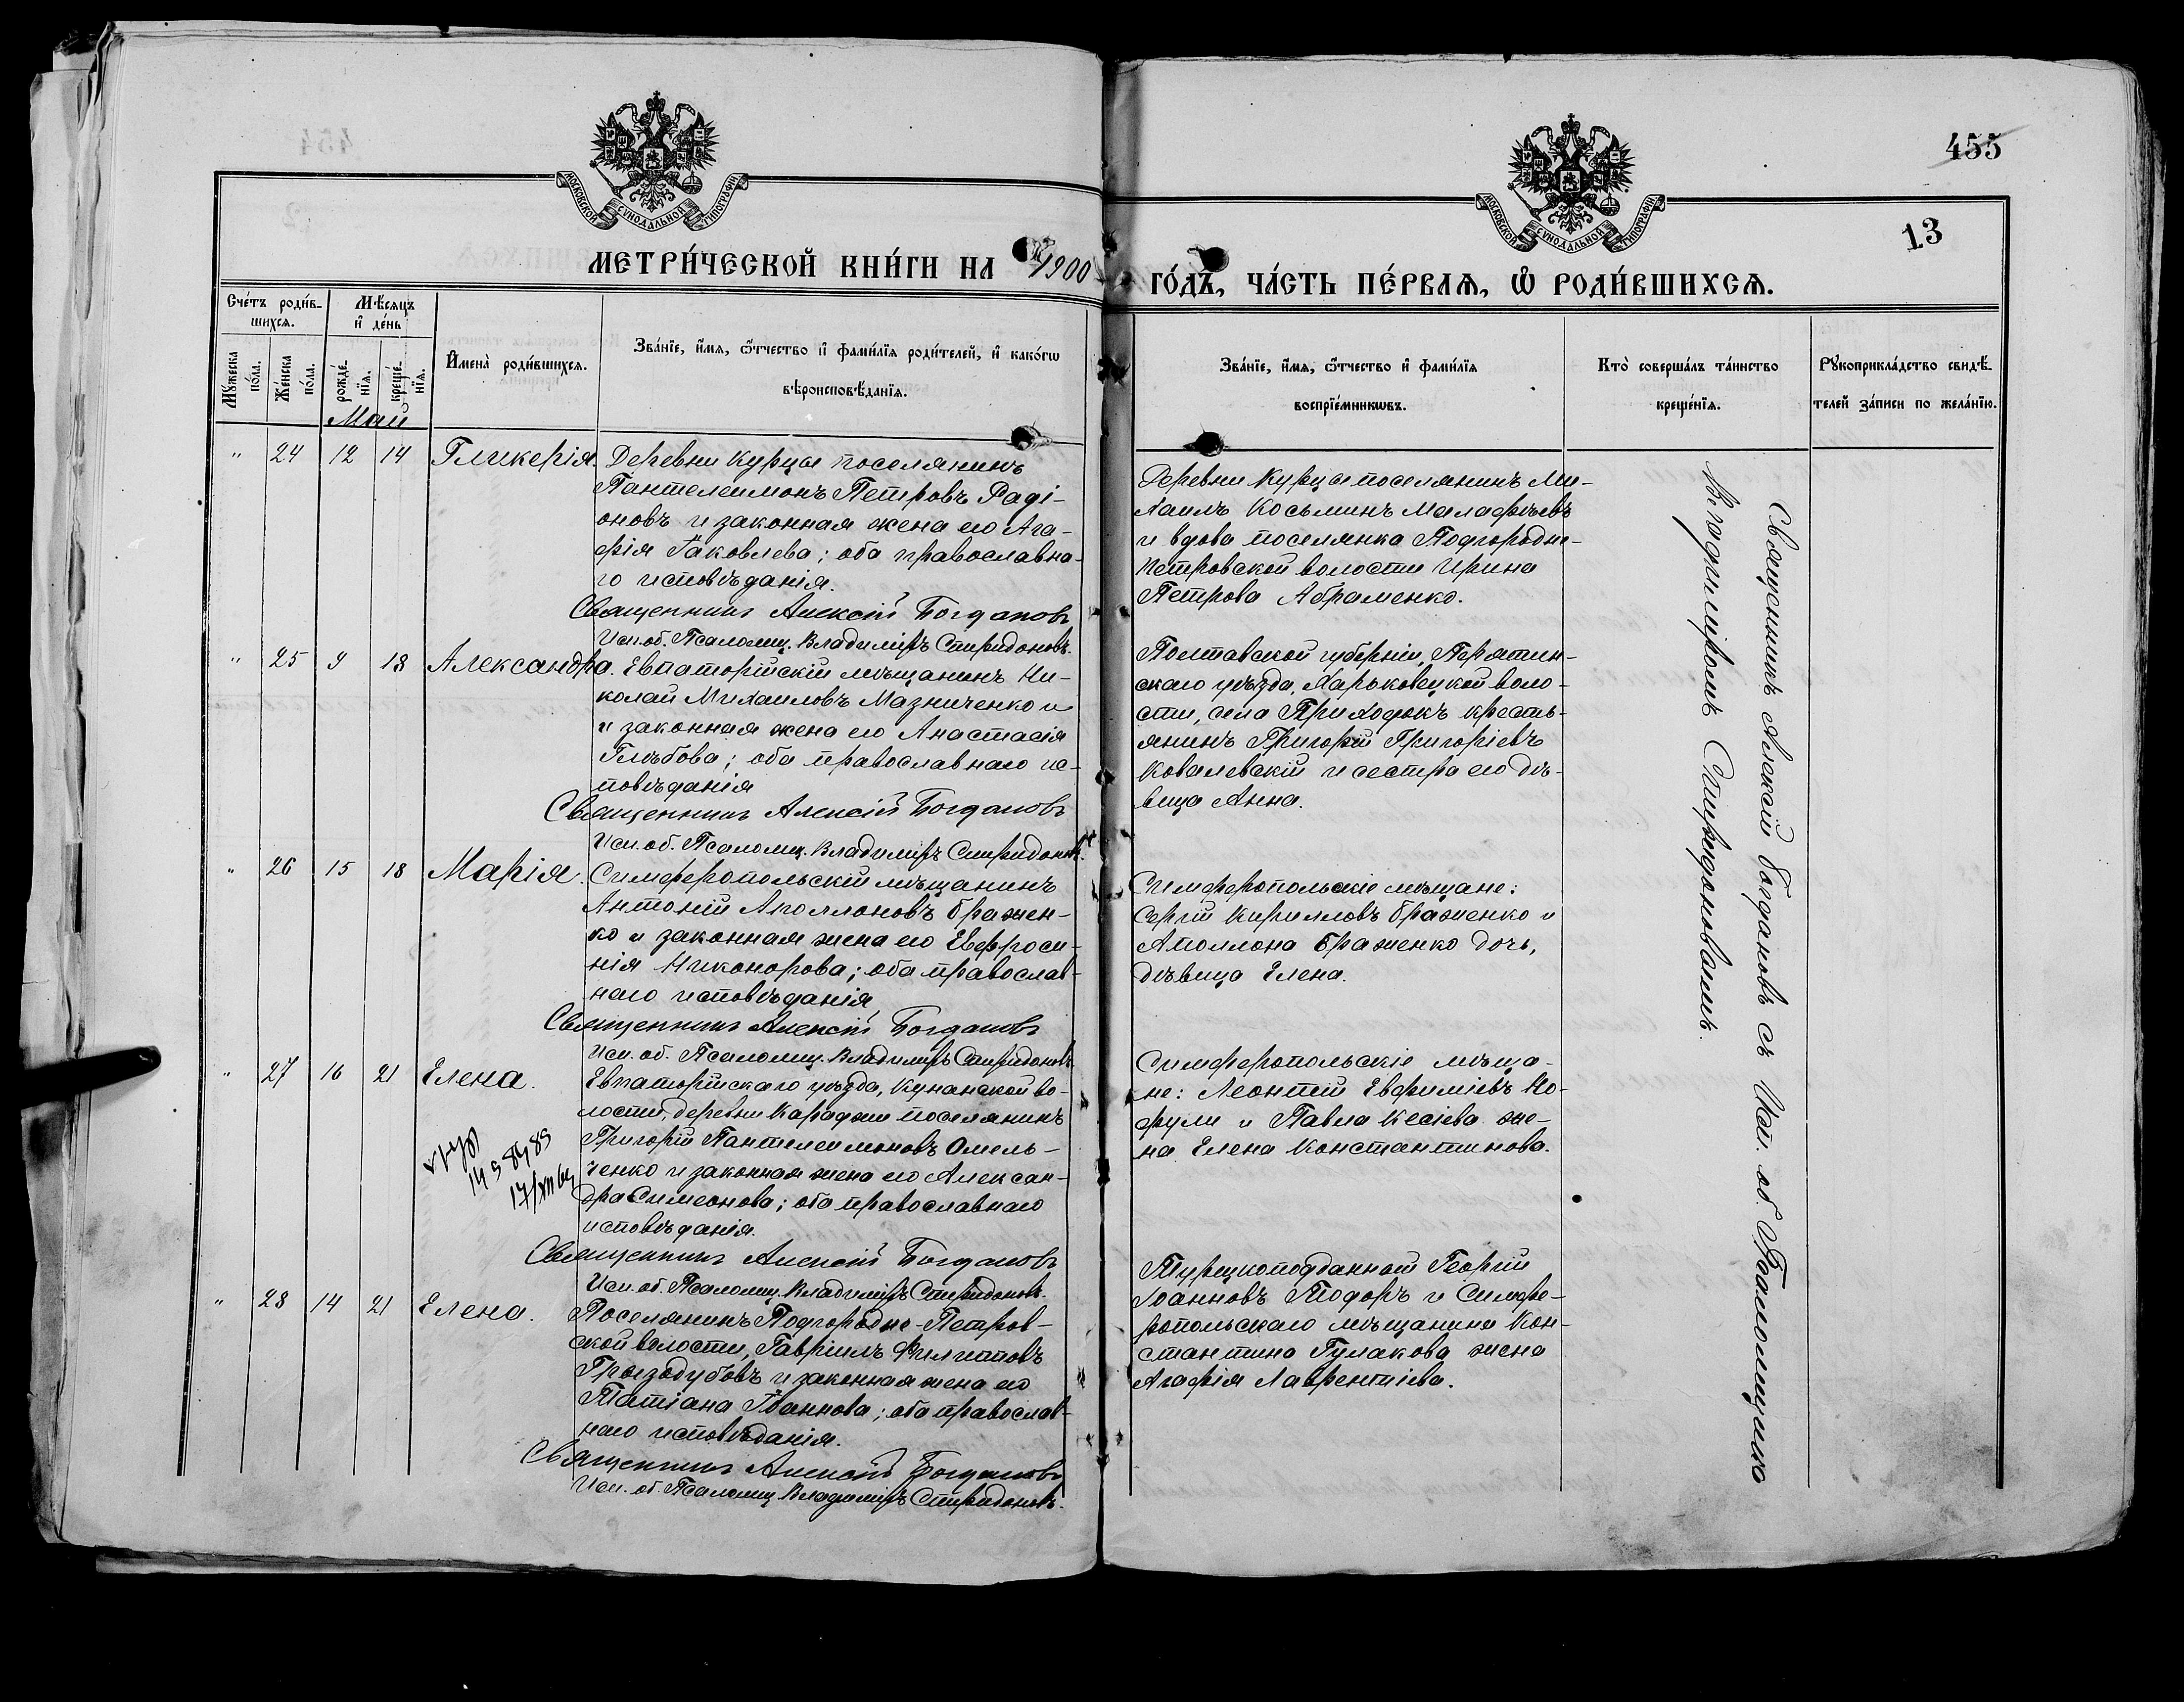 455
13
МОСКОВСКОЙ СѴНОДАЛЬНОЙ ТИПОГРАФІИ
МОСКОВСКОЙ СѴНОДАЛЬНОЙ ТИПОГРАФІИ
МЕТРИ́ЧЕСКОЙ КНИ́ГИ НА 1900
ГО́ДЪ, ЧА́СТЬ ПЕ́РВАѦ, Ѿ РОДИ́ВШИХСѦ.
Сче́тъ роди́в-
шихсѧ.
Мѣ́сѧцъ
и҆ де́нь
Мꙋ́жеска
по́ла.
Же́нска
по́ла.
рожде́-
нїѧ.
креще́-
нїѧ.
И҆мена̀ роди́вшихсѧ.
Зва́нїе, и҆́мѧ, ѻ҆́тчество и҆ фами́лїѧ роди́телей, и҆ како́гѡ
вѣроисповѣ́данїѧ.
Зва́нїе, и҆́мѧ, ѻ҆́тчество и҆ фами́лїѧ
воспрїе́мникѡвъ.
Кто̀ соверша́лъ та́инство
креще́нїѧ.
Рꙋкоприкла́дство свидѣ́-
телей за́писи по жела́нїю.
Май
" 24 12 14 Гликерія. Деревни Курцы поселянинъ
Пантелеимонъ Петровъ Раді-
оновъ и законная жена его Ага-
фія Іаковлева; оба православна-
го исповѣданія.
Священникъ Алексій Богдановъ
Исп. об. Псаломщ. Владиміръ Спиридоновъ.
Деревни Курцы поселянинъ Ми-
хаилъ Косьминъ Малафѣевъ
и вдова поселянка Подгородне-
Петровской волости Ирина
Петрова Абраменко.
" 25 9 18 Александра. Евпаторійскій мѣщанинъ Ни-
колай Михаиловъ Мазниченко и
и законная жена его Анастасія
Глѣбова; оба православнаго ис-
повѣданія
Священникъ Алексій Богдановъ
Исп. об. Псаломщ. Владиміръ Спиридоновъ.
Полтавской губерніи, Пирятин-
скаго уѣзда, Харьковецкой воло-
сти, села Приходокъ кресть-
янинъ Григорій Григоріевъ
Ковалевскій и сестра его дѣ-
вица Анна.
" 26 15 18 Марія. Симферопольскій мѣщанинъ
Антоній Аполлоновъ Бражен-
ко и законная жена его Евфроси-
нія Никонорова; оба православ-
наго исповѣданія
Священникъ Алексій Богдановъ
Исп. об. Псаломщ. Владиміръ Спиридоновъ.
Симферопольскіе мѣщане:
Сергій Кирилловъ Браженко и
Аполлона Браженко дочь,
дѣвица Елена.
" 27 16 21 Елена. Евпаторійскаго уѣзда, Кунанской во-
лости, деревни Караджи поселянинъ
Григорій Пантелеимоновъ Омель-
ченко и законная жена его Алексан-
дра Симеонова; оба православнаго
исповѣданія.
Священникъ Алексій Богдановъ
Исп. об. Псаломщ. Владиміръ Спиридоновъ.
Симферопольскіе мѣща-
не: Леонтій Евфиміевъ Ко-
фули и Павла Кесіева же-
на Елена Константинова.
" 28 14 21 Елена. Поселянинъ Подгородне-Петров-
ской волости, Гавріилъ Филиповъ
Грызодубовъ и законная жена его
Татіана Іоаннова; оба православ-
наго исповѣданія.
Священникъ Алексій Богдановъ
Исп. об. Псаломщ. Владиміръ Спиридоновъ.
Турецкоподданный Георгій
Іоанновъ Тодоръ и Симфе-
ропольскаго мѣщанина Кон-
стантина Гулакова жена
Агафія Лаврентіева.
Священникъ Алексій Богдановъ съ Исп. об. Псаломщика
Владиміромъ Спиридоновымъ.